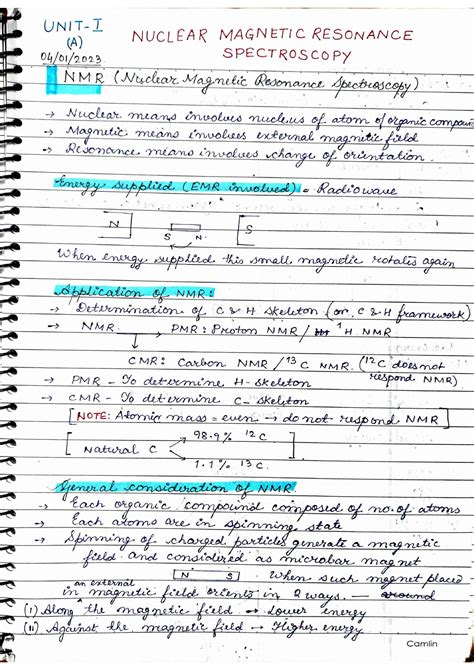 UNIT-I
(A)
NUCLEAR MAGNETIC RESONANCE
SPECTROSCOPY
04/01/2023
NMR (Nuclear Magnetic Resonance Spectroscopy)
→ Nuclear means involves nucleus of atom of organic compoun
→ Magnetic means involves external magnetic field
→ Resonance means involves change of orientation.
Energy supplied (EMR involved) = Radiowave
N S N S
When energy supplied this small magnetic rotatis again
Application of NMR:
→ Determination of C & H skeleton (or C & H framework)
→ NMR → PMR: Proton NMR / ¹H NMR
CMR: Carbon NMR / ¹³C NMR. (¹²C does not
respond NMR)
→ PMR - To determine H-skeleton
→ CMR - To determine C-skeleton
[NOTE: Atomic mass = even → do not respond NMR]
[Natural C 98.9% ¹²C
1.1% ¹³C.]
General consideration of NMR
→ Each organic compound composed of no. of atoms
→ Each atoms are in spinning state
→ Spinning of charged particles generate a magnetic
field and considered as microbar magnet
N S. When such magnet placed
in an external magnetic field orients in 2 ways. — around
(i) Along the magnetic field → Lower energy
(ii) Against the magnetic field → Higher energy
Camlin